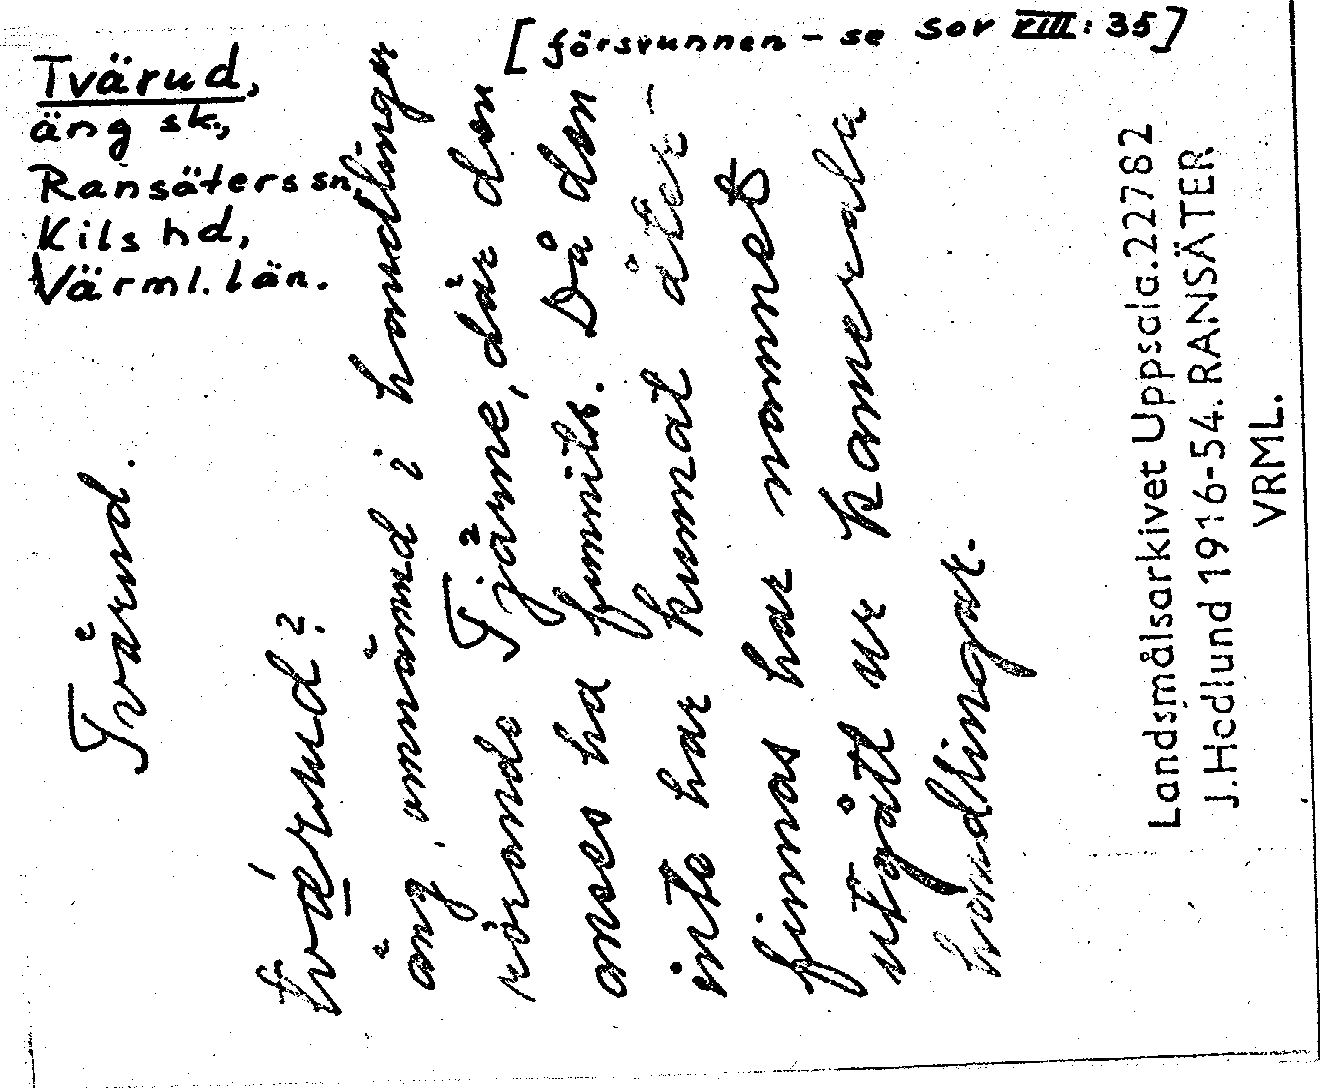 [försvunnen - se SOV VIII: 35]
Tvärud,
äng sk.,
Ransäters sn,
Kils hd,
Värml. län.
Tvärud.
tvǽrud?
äng, omnämnd i handlingar
rörande Tjärne, där den
anses ha funnits. Då den
inte har kunnat åter-
finnas har namnet
utgått ur kamerala
handlingar.
Landsmålsarkivet Uppsala. 22782
J. Hedlund 1916-54. RANSÄTER
VRML.